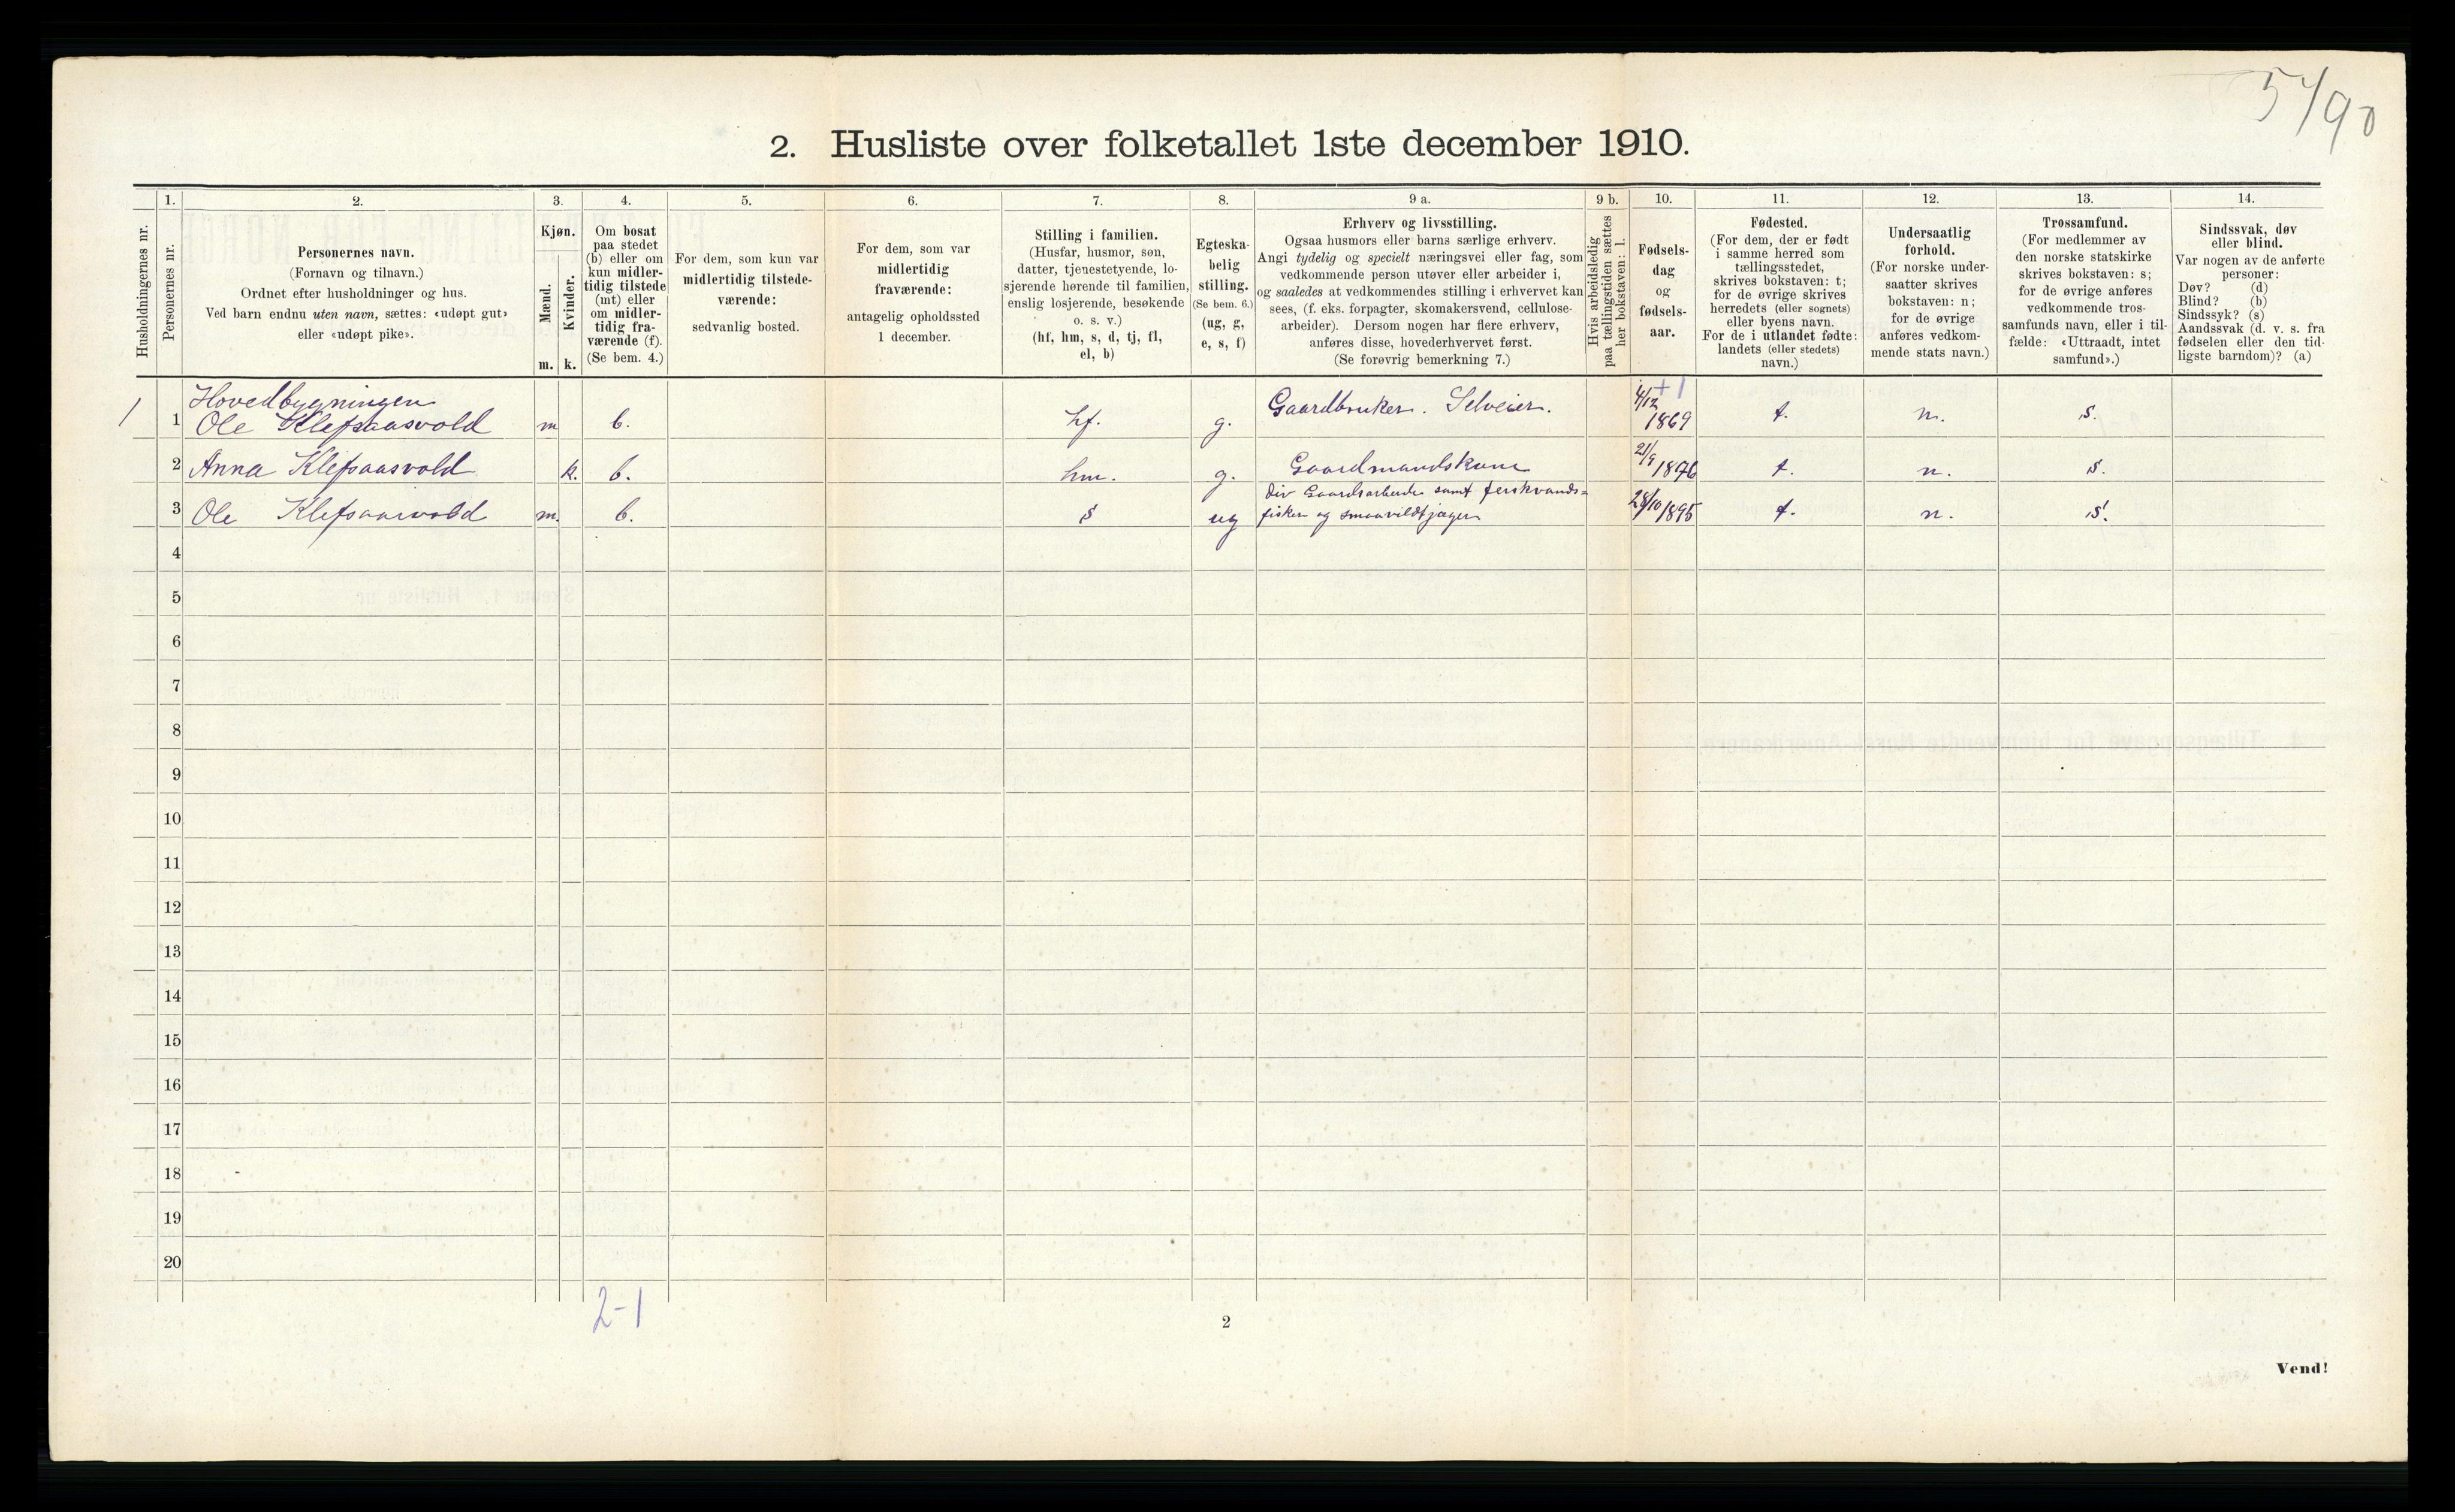 5/90
2. Husliste over folketallet 1ste december 1910.
Husholdningernes nr.
1.
Personernes nr.
2.
Personernes navn.
(Fornavn og tilnavn.)
Ordnet efter husholdninger og hus.
Ved barn endnu uten navn, sættes: «udøpt gut»
eller «udøpt pike».
3.
Kjøn.
Mænd.
m.
Kvinder.
k.
4.
Om bosat
paa stedet
(b) eller om
kun midler-
tidig tilstede
(mt) eller
om midler-
tidig fra-
værende (f).
(Se bem. 4.)
5.
For dem, som kun var
midlertidig tilstede-
værende:
sedvanlig bosted.
6.
For dem, som var
midlertidig
fraværende:
antagelig opholdssted
1 december.
7.
Stilling i familien.
(Husfar, husmor, søn,
datter, tjenestetyende, lo-
sjerende hørende til familien,
enslig losjerende, besøkende
o. s. v.)
(hf, hm, s, d, tj, fl,
el, b)
8.
Egteska-
belig
stilling.
(Se bem. 6.)
(ug, g,
e, s, f)
9 a.
Erhverv og livsstilling.
Ogsaa husmors eller barns særlige erhverv.
Angi tydelig og specielt næringsvei eller fag, som
vedkommende person utøver eller arbeider i,
og saaledes at vedkommendes stilling i erhvervet kan
sees, (f. eks. forpagter, skomakersvend, cellulose-
arbeider). Dersom nogen har flere erhverv,
anføres disse, hovederhvervet først.
(Se forøvrig bemerkning 7.)
9 b.
Hvis arbeidsledig
paa tællingstiden sættes
her bokstaven: l.
10.
Fødsels-
dag
og
fødsels-
aar.
11.
Fødested.
(For dem, der er født
i samme herred som
tællingsstedet,
skrives bokstaven: t;
for de øvrige skrives
herredets (eller sognets)
eller byens navn.
For de i utlandet fødte:
landets (eller stedets)
navn.)
12.
Undersaatlig
forhold.
(For norske under-
saatter skrives
bokstaven: n;
for de øvrige
anføres vedkom-
mende stats navn.)
13.
Trossamfund.
(For medlemmer av
den norske statskirke
skrives bokstaven: s;
for de øvrige anføres
vedkommende tros-
samfunds navn, eller i til-
fælde: «Uttraadt, intet
samfund».)
14.
Sindssvak, døv
eller blind.
Var nogen av de anførte
personer:
Døv? (d)
Blind? (b)
Sindssyk? (s)
Aandssvak (d. v. s. fra
fødselen eller den tid-
ligste barndom)? (a)
Hovedbygningen
1 1 Ole Klefsaasvold m b. hf. g. Gaardbruker. Selveier. 4/12 1869 t. n. s.
2 Anna Klefsaasvold k. b. hm. g. Gaardmandskone 21/9 1876 t. n. s.
3 Ole Klefsaasvold m. b. s ug Div Gaardsarbeide samt ferskvands=
fisker og smaavildtjæger 28/10 1895 t. n. s.
4
5
6
7
8
9
10
11
12
13
14
15
16
17
18
19
20
2-1
2
Vend!